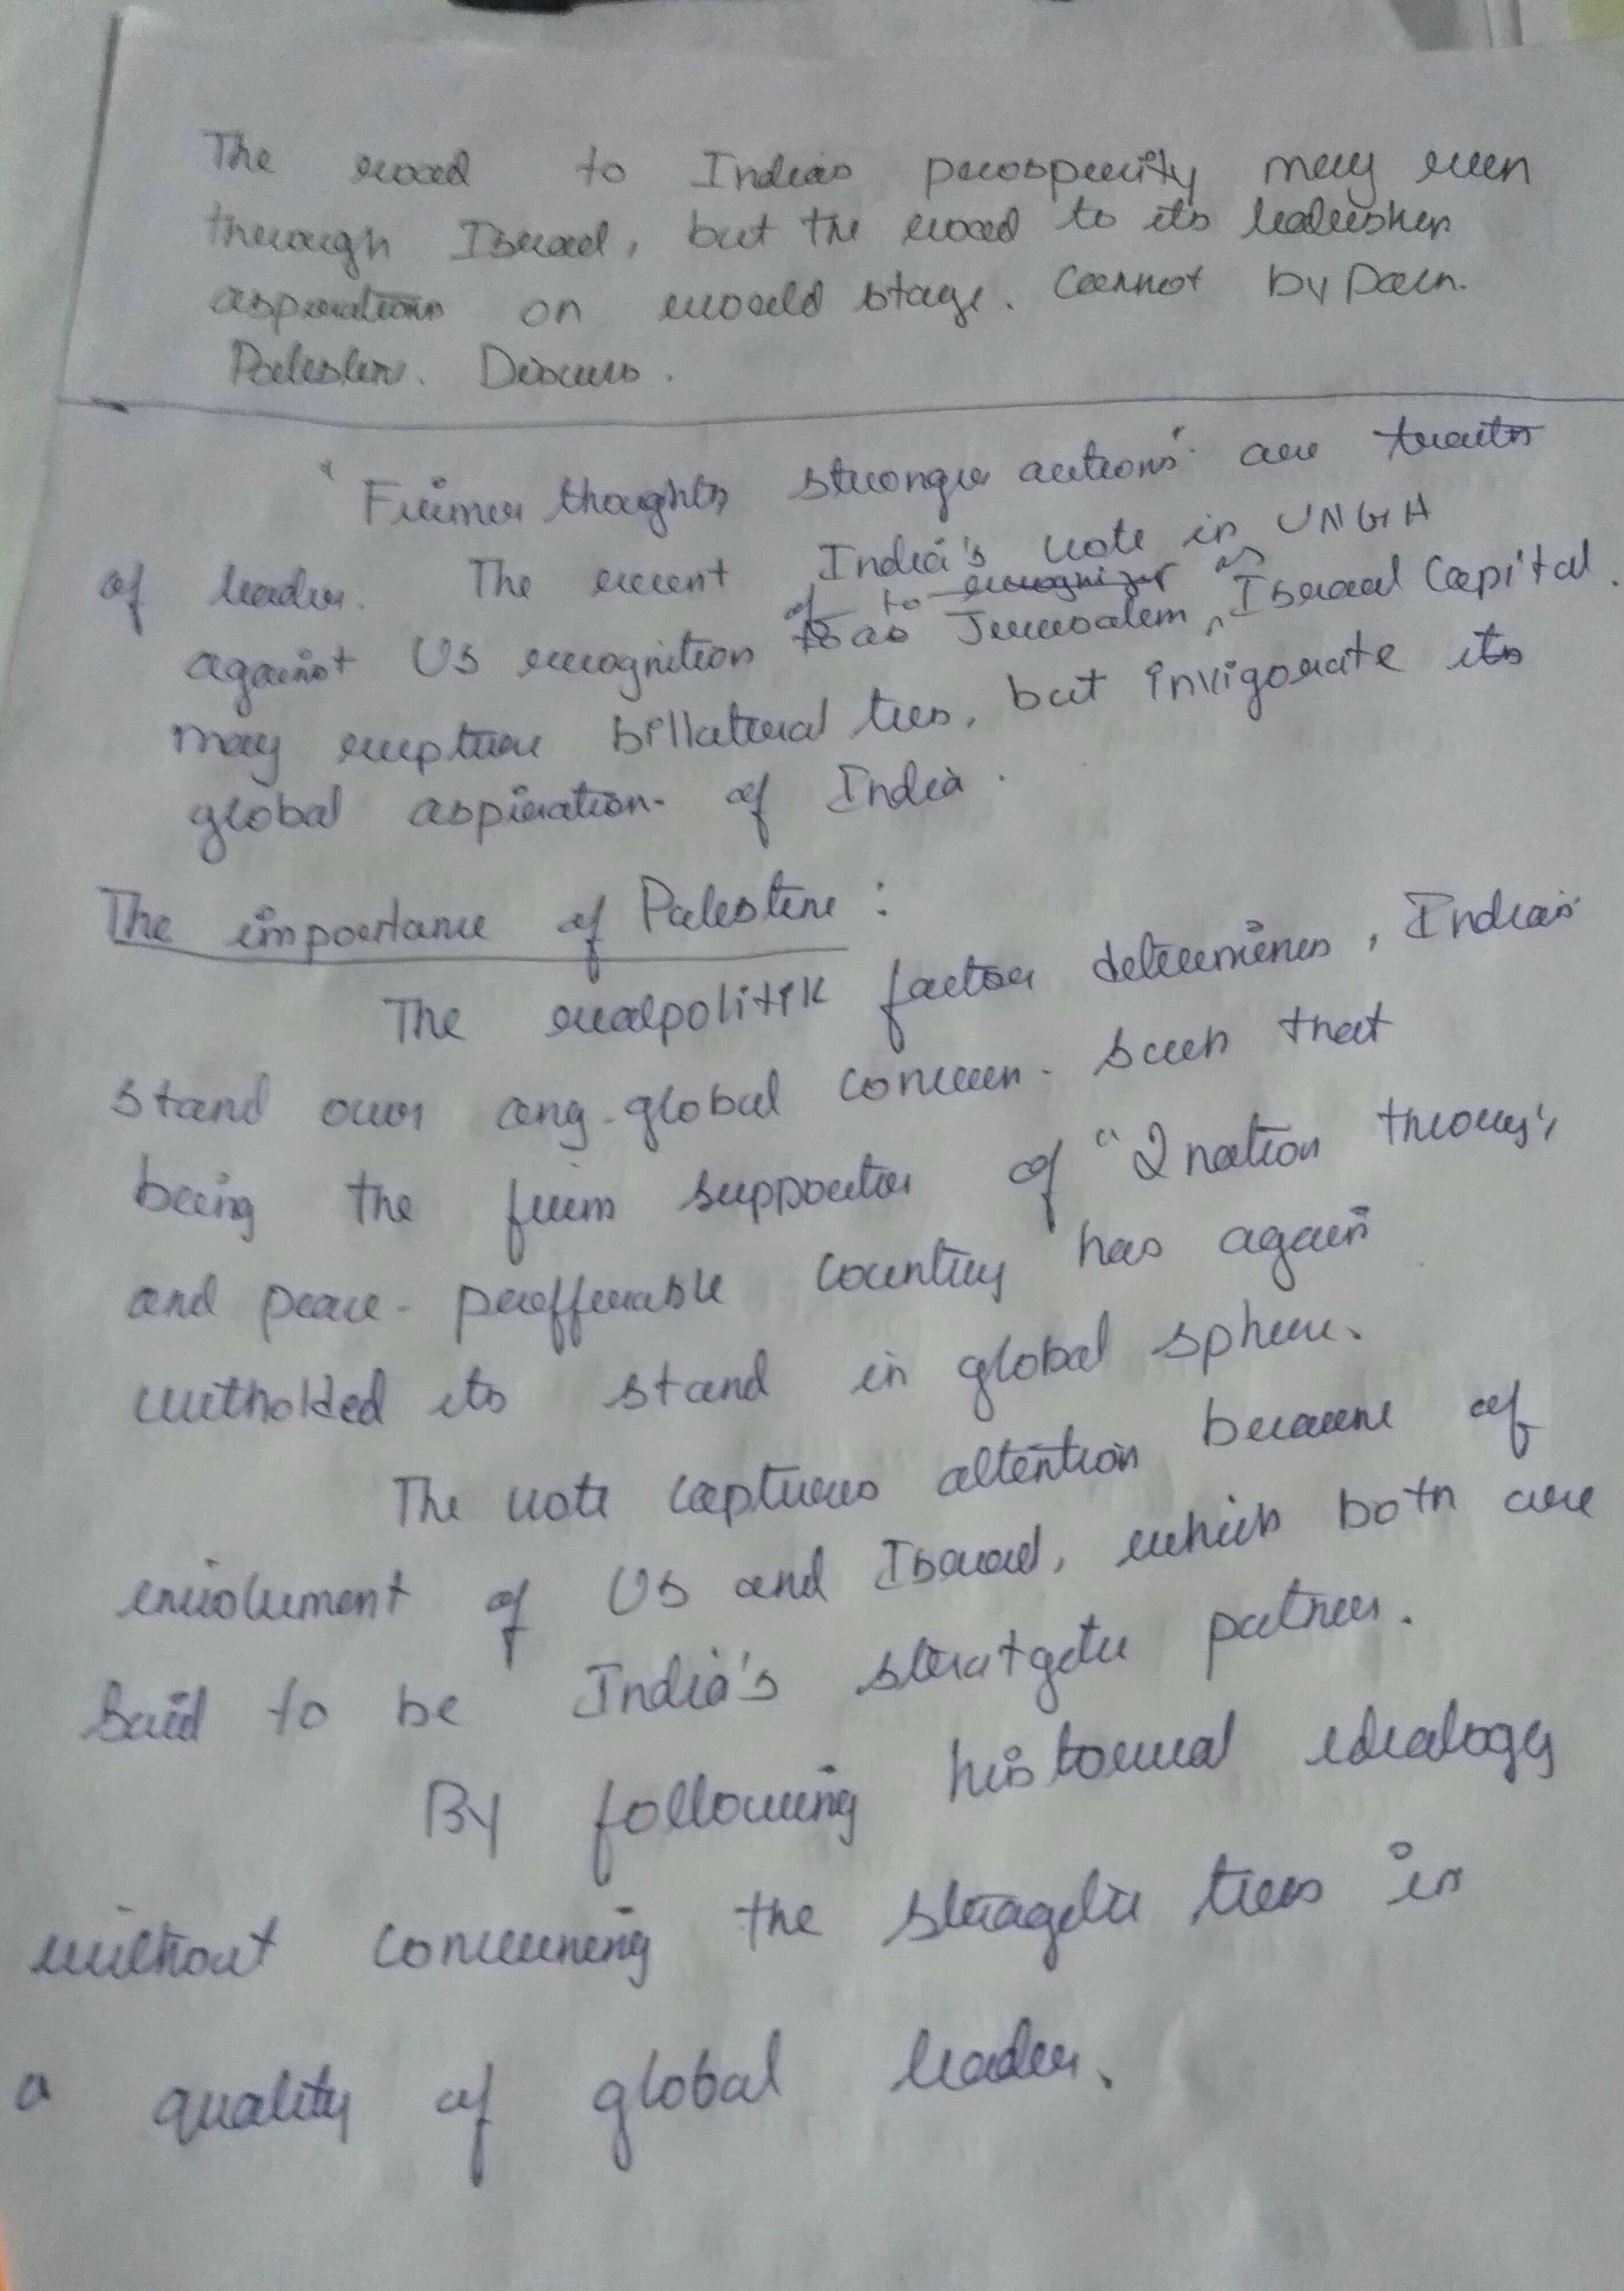 The road to Indias prosperity may run
through Israel, but the road to its leadership
aspirations on world stage. Cannot by pass.
Palestine. Discuss.
"Firmer thoughts stronger actions" are traits
of leader. The recent India's vote in UNGA
against US recognition of to Jerusalem as Israel Capital.
may rupture billateral ties, but invigorate its
global aspiration of India.
The importance of Palestine :
The realpolitik factor determines, Indias
stand over any global concern. Such that
being the firm supporter of "2 nation theory",
and peace-prefferable country has again
witholded its stand in global sphere.
The vote captures attention because of
involvement of US and Israel, which both are
said to be India's stratgetic patner.
By following historical idealogy
without concerning the stragetic ties is
a quality of global leader.